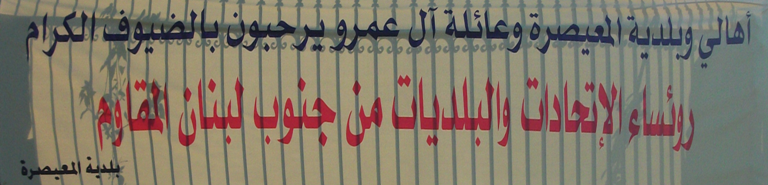 أهالي وبلدية المعيصرة وعائلة آل عمرو يرحبون بالضيوف الكرام
روئساء الإتحادات والبلديات من جنوب لبنان المقاوم
بلدية المعيصرة